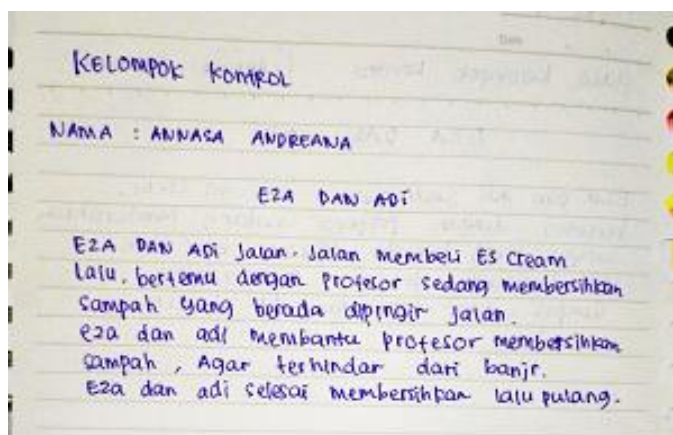 KELOMPOK KONTROL
NAMA : ANNASA ANDREANA
EZA DAN ADI
EZA DAN ADI Jalan. Jalan membeli Es Cream
Lalu. bertemu dengan Profesor sedang membersihkan
Sampah yang berada dipingir jalan.
eza dan adi membantu profesor membersihkan
sampah, Agar terhindar dari banjr.
Eza dan adi selesai membersihkan lalu pulang.